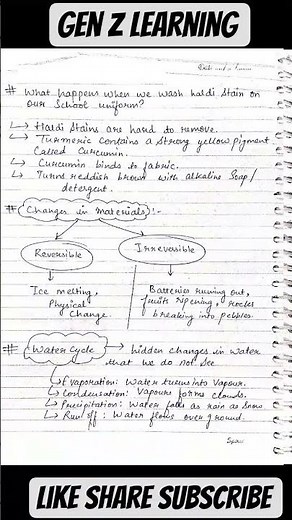 GEN Z LEARNING
# What happens when we wash haldi stain on
our school uniform?
↳ Haldi stains are hard to remove.
↳ Turmeric contains a strong yellow pigment
called Curcumin.
↳ Curcumin binds to fabric.
↳ Turns reddish brown with alkaline soap/
detergent.
# Changes in materials :-
Reversible
Irreversible
Ice melting,
Physical
Change.
Batteries running out,
fruits ripening, rocks
breaking into pebbles.
# Water Cycle → hidden changes in water
that we do not see
↳ Evaporation: Water turns into Vapour.
↳ Condensation: Vapours forms clouds.
↳ Precipitation: Water falls as rain as snow.
↳ Run off: Water flows over ground.
LIKE SHARE SUBSCRIBE